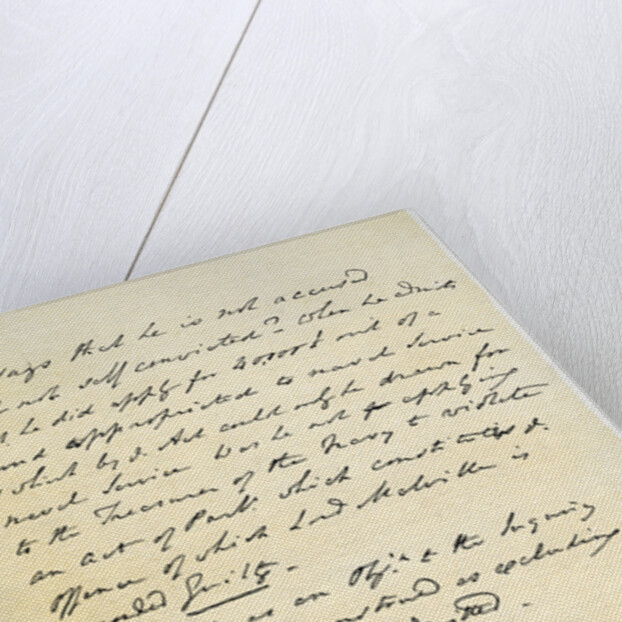 says that he is not accused
not self convicted? - when he admits
he did apply for 40,000£ out of a
appropriated to naval service
which by d. Act could only be drawn for
naval service was he not applying
to the Treasurer of the Navy to violate
an act of Parlt. which constitutes d.
offence of which Lord Melville is
Guilty -
as an Obj.n to the Inquiry
as excluding